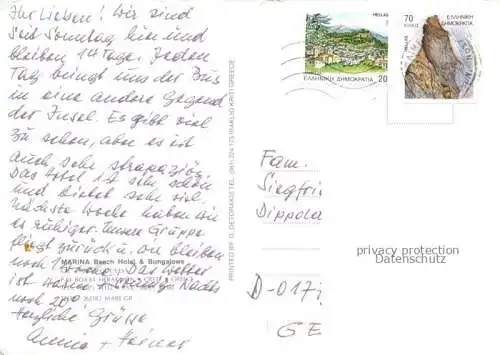 Ihr Lieben! Wir sind
seit Sonntag hier und
bleiben 14 Tage. Jeden
Tag bringt uns der Bus
in eine andere Gegend
der Insel. Es gibt viel
zu sehen, aber es ist
auch sehr strapaziös.
Das Hotel ist sehr schön
und bietet sehr viel.
Nächste Woche haben wir
es ruhiger. Unsere Gruppe
fliegt zurück u. wir bleiben
noch 1 Woche. Das Wetter
ist warm Nachts
noch 20°.
Herzliche Grüsse
MARINA Beach Hotel & Bungalows
PRINTED BY D. DETORAKIS TEL. (081) 224 175 IRAKLIO KRITI GREECE
HELLAS
ΕΛΛΗΝΙΚΗ ΔΗΜΟΚΡΑΤΙΑ 20
70
ΕΛΛΗΝΙΚΗ
ΔΗΜΟΚΡΑΤΙΑ
HELLAS
Fam.
Siegfri
Dippola
privacy protection
Datenschutz
D-017
GE